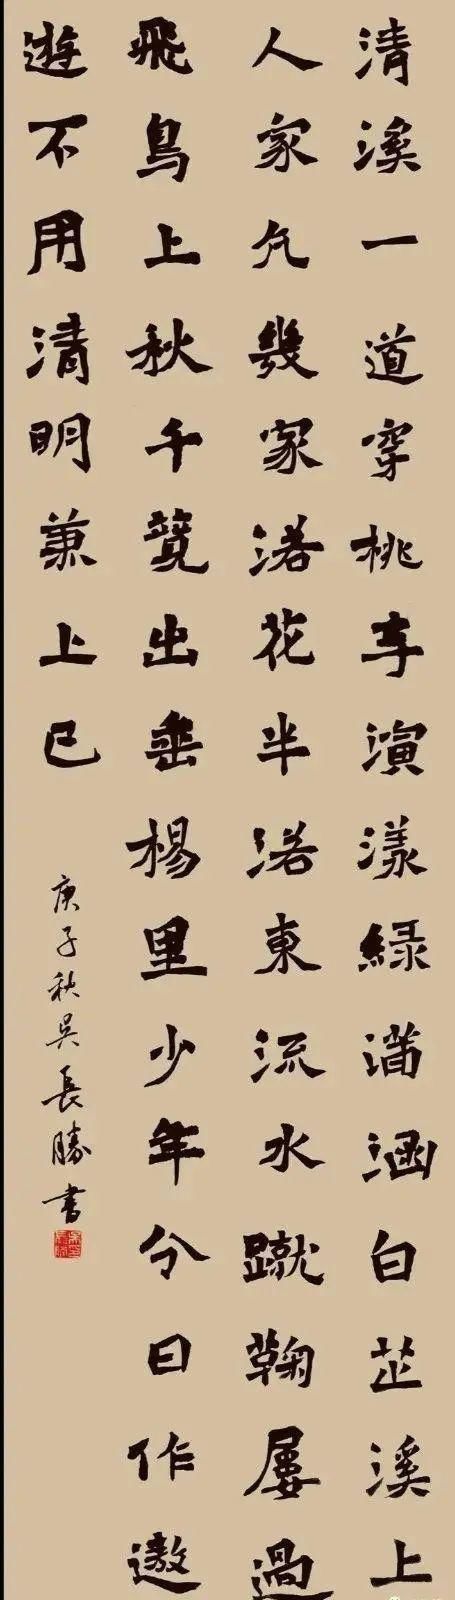 清溪一道穿桃李演漾綠蒲涵白芷溪上
人家凡幾家落花半落東流水蹴鞠屢過
飛鳥上秋千競出垂楊里少年今日作遨
遊不用清明兼上巳
庚子秋吳長勝書